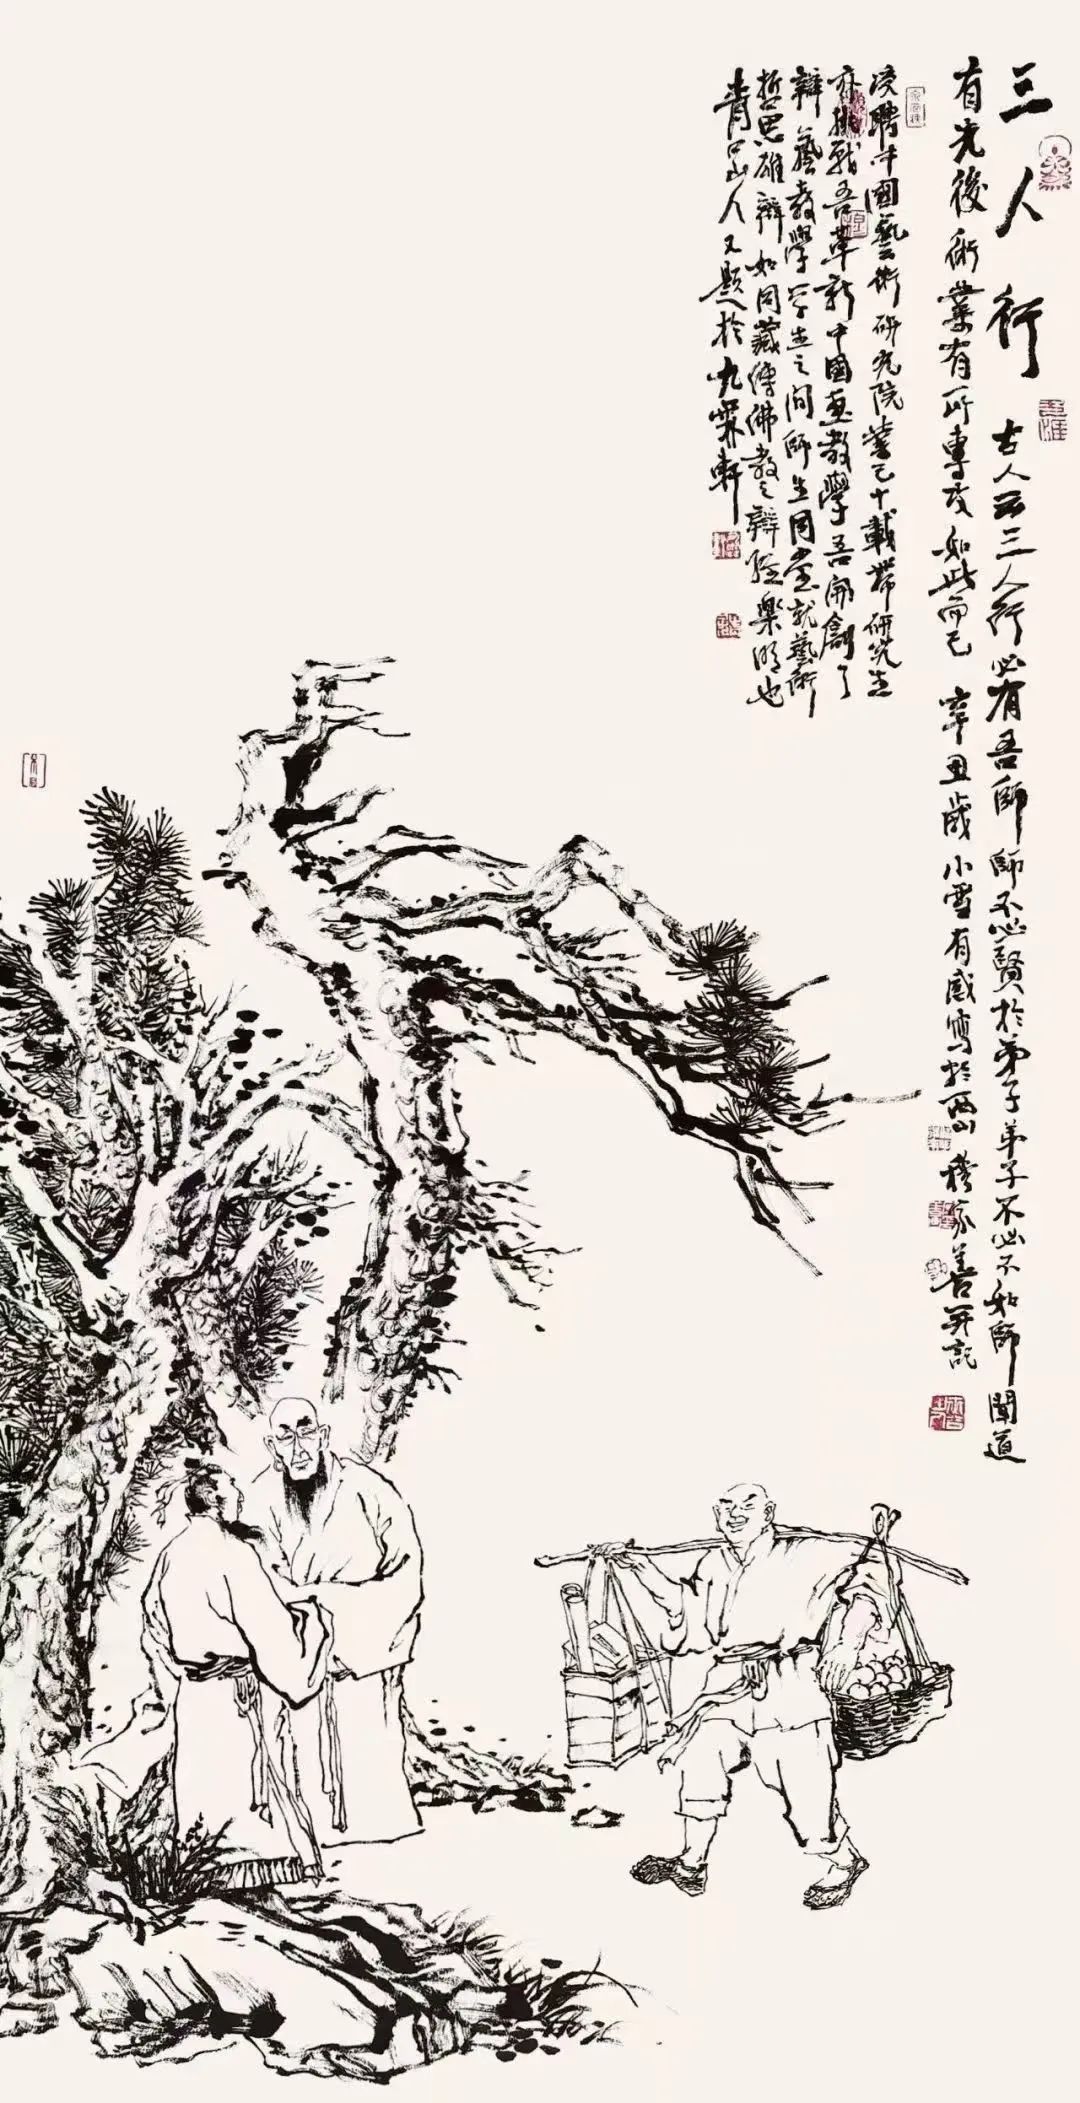 三人行
古人云三人行必有吾師師不必賢於弟子弟子不必不如師聞道
有先後術業有所專攻如此而已 辛丑歲小雪有感寫於西山 穆家善并記
受聘中國藝術研究院業已十載帶研究生
亦挑戰吾革新中國畫教學吾開創了
辯藝教學學生之間師生同堂就藝術
哲思雄辯如同藏傳佛教之辯經樂呢也
青山人又題於九霖軒